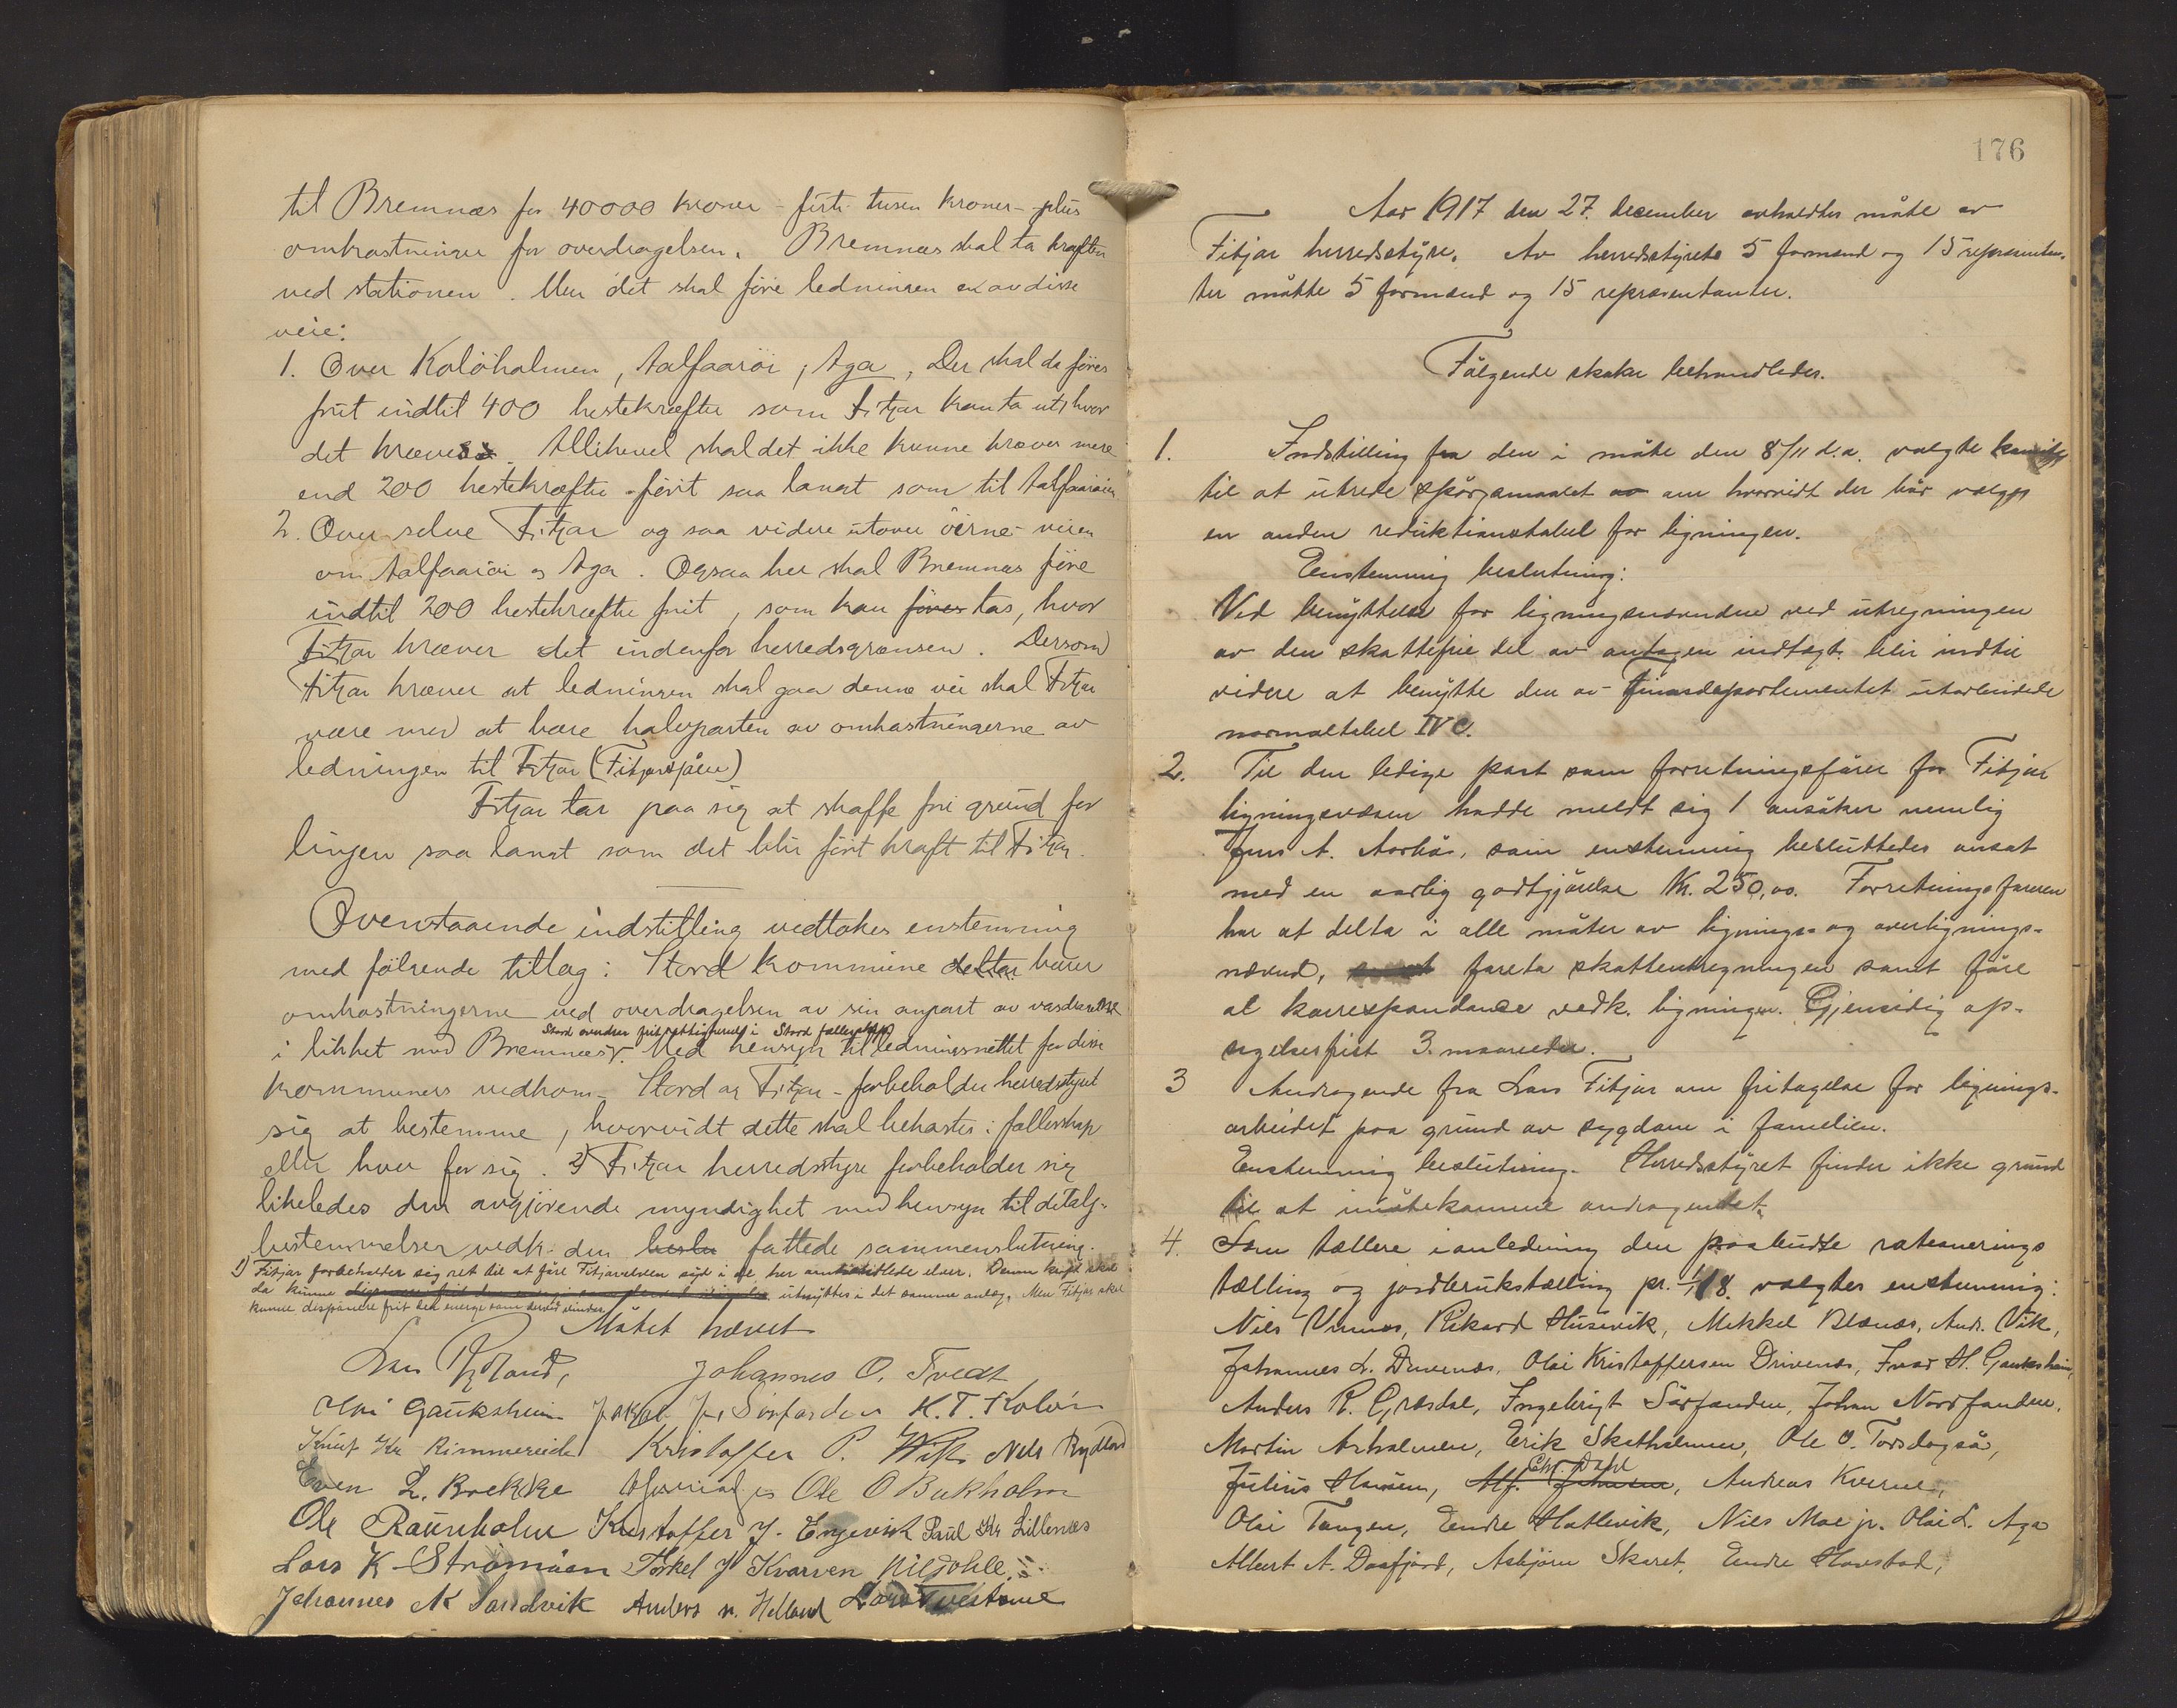 til Bremnæs for 40000 kroner - firti tusen kroner - plus
omkostninger for overdragelsen. Bremnæs skal ta kraften
ved stationen. Men det skal före ledningen en av disse
veie:
1. Over Kolöholmen, Aalfaaröi, Aga, Der skal da föres
frit indtil 400 hestekræfter som Fitjar kan ta ut, hvor
det kræves. Allikevel skal det ikke kunne kræves mere
end 200 hestekræfter fört saa langt som til Aalfaaröien
2. Over selve Fitjar og saa videre utover öirne - veien
om Aalfaaröi og Aga. Ogsaa her skal Bremnæs före
indtil 200 hestekræfter frit, som kan föres tas, hvor
Fitjar kræver det indenfor herredsgrænsen. Dersom
Fitjar kræver at ledningen skal gaa denne vei skal Fitjar
være med at bære halvparten av omkostningerne av
ledningen til Fitjar (Fitjarsjöen)
Fitjar tar paa sig at skaffe fri grund for
lingen saa langt som det blir fört kraft til Fitjar.
Ovenstaaende indstilling vedtokes enstemmig
med fölgende tillæg: Stord kommune deltar bærer
omkostningerne ved overdragelsen av sin anpart av vasdraget
i likhet med Bremnæs. Med hensyn til ledningsnettet for disse
Stord ovrdrar fri rettigheter i Stord fælleskap
kommuners vedkom - Stord og Fitjar - forbeholder herredsstyret
sig at bestemme, hvorvidt dette skal bekostes i fællesskap
eller hver for sig. 2) Fitjar herredsstyre forbeholder sig
likeledes den avgjörende myndighet med hensyn til detalj-
bestemmelser vedk. den beslu fattede sammenslutning.
1) Fitjar forbeholder sig ret til at före Fitjarelven syd i de her omhandlede elver. Denne kraft skal
da kunne utnyttes i det samme anlæg. Men Fitjar skal
kunne disponere frit den energi som derved vindes.
Mötet hævet
Lars Rydland, Johannes O. Tvedt
Olai Gauksheim Jakob J. Sörfonden K. T. Kolöen
Knut Kr Rimmereide Kristoffer P. Wik Nils Rydland
Even L. Brekke Ole O Bukholm
Ole Raunholm Kristoffer J. Engevik Paul Kr Lillenes
Lars K Strömöen Torkel J Kvarven
Johannes N Sandvik Anders n. Helland Lars Tvesteme
176
Aar 1917 den 27. december avholdtes möte av
Fitjar herredsstyre. Av herredsstyrets 5 formænd og 15 repræsentan-
ter mötte 5 formænd og 15 repræsentanter.
Fölgende saker behandledes.
1. Indstilling fra den i möte den 8/11 d.a. valgte komite
til at utrede spörgsmaalet av om hvorvidt der bör vælges
en anden reduktionstabel for ligningen.
Enstemmig beslutning:
Ved benyttelse for ligningsnævndene ved utregningen
av den skattefrie del av antagen indtægt blir indtil
videre at benytte den av Finansdepartementet utarbeidede
normaltabel IV C.
2. Til den ledige post som forretningsförer for Fitjar
ligningsvæsen hadde meldt sig 1 ansöker nemlig
Jens A. Aarbö, som enstemmig besluttedes ansat
med en aarlig godtgjörelse Kr. 250,00. Forretningsföreren
har at delta i alle möter av lignings- og overlignings-
nævnd, foreta skatteutregningen samt före
al korrespondance vedk. ligningen. Gjensidig op-
sigelsesfrist 3. maaneder.
3 Andragende fra Lars Fitjar om fritagelse for lignings-
arbeidet paa grund av sygdom i familien.
Enstemmig beslutning. Herredsstyret finder ikke grund
til at imötekomme andragendet.
4. Som tællere i anledning den paabudte rationerings
tælling og jordbrukstælling pr. 1/1 18. valgtes enstemmig:
Nils Vinnes, Rikard Husevik, Mikkel Blænes, Andr. Vik,
Johannes L. Drivenes, Olai Kristoffersen Drivenes, Ivar H. Gauksheim,
Anders R. Græsdal, Ingebrigt Sörfonden, Johan Nordfonden,
Martin Arholmen, Erik Skatholmen, Ole O. Torsdagsö,
Chr. Dahl
Julius Hansen, Alf. Johnsen, Andreas Kverne,
Olai Tangen, Endre Hatlevik, Nils Moe jr. Olai L. Aga
Albert A. Daafjord, Asbjörn Skaret, Endre Havstad,